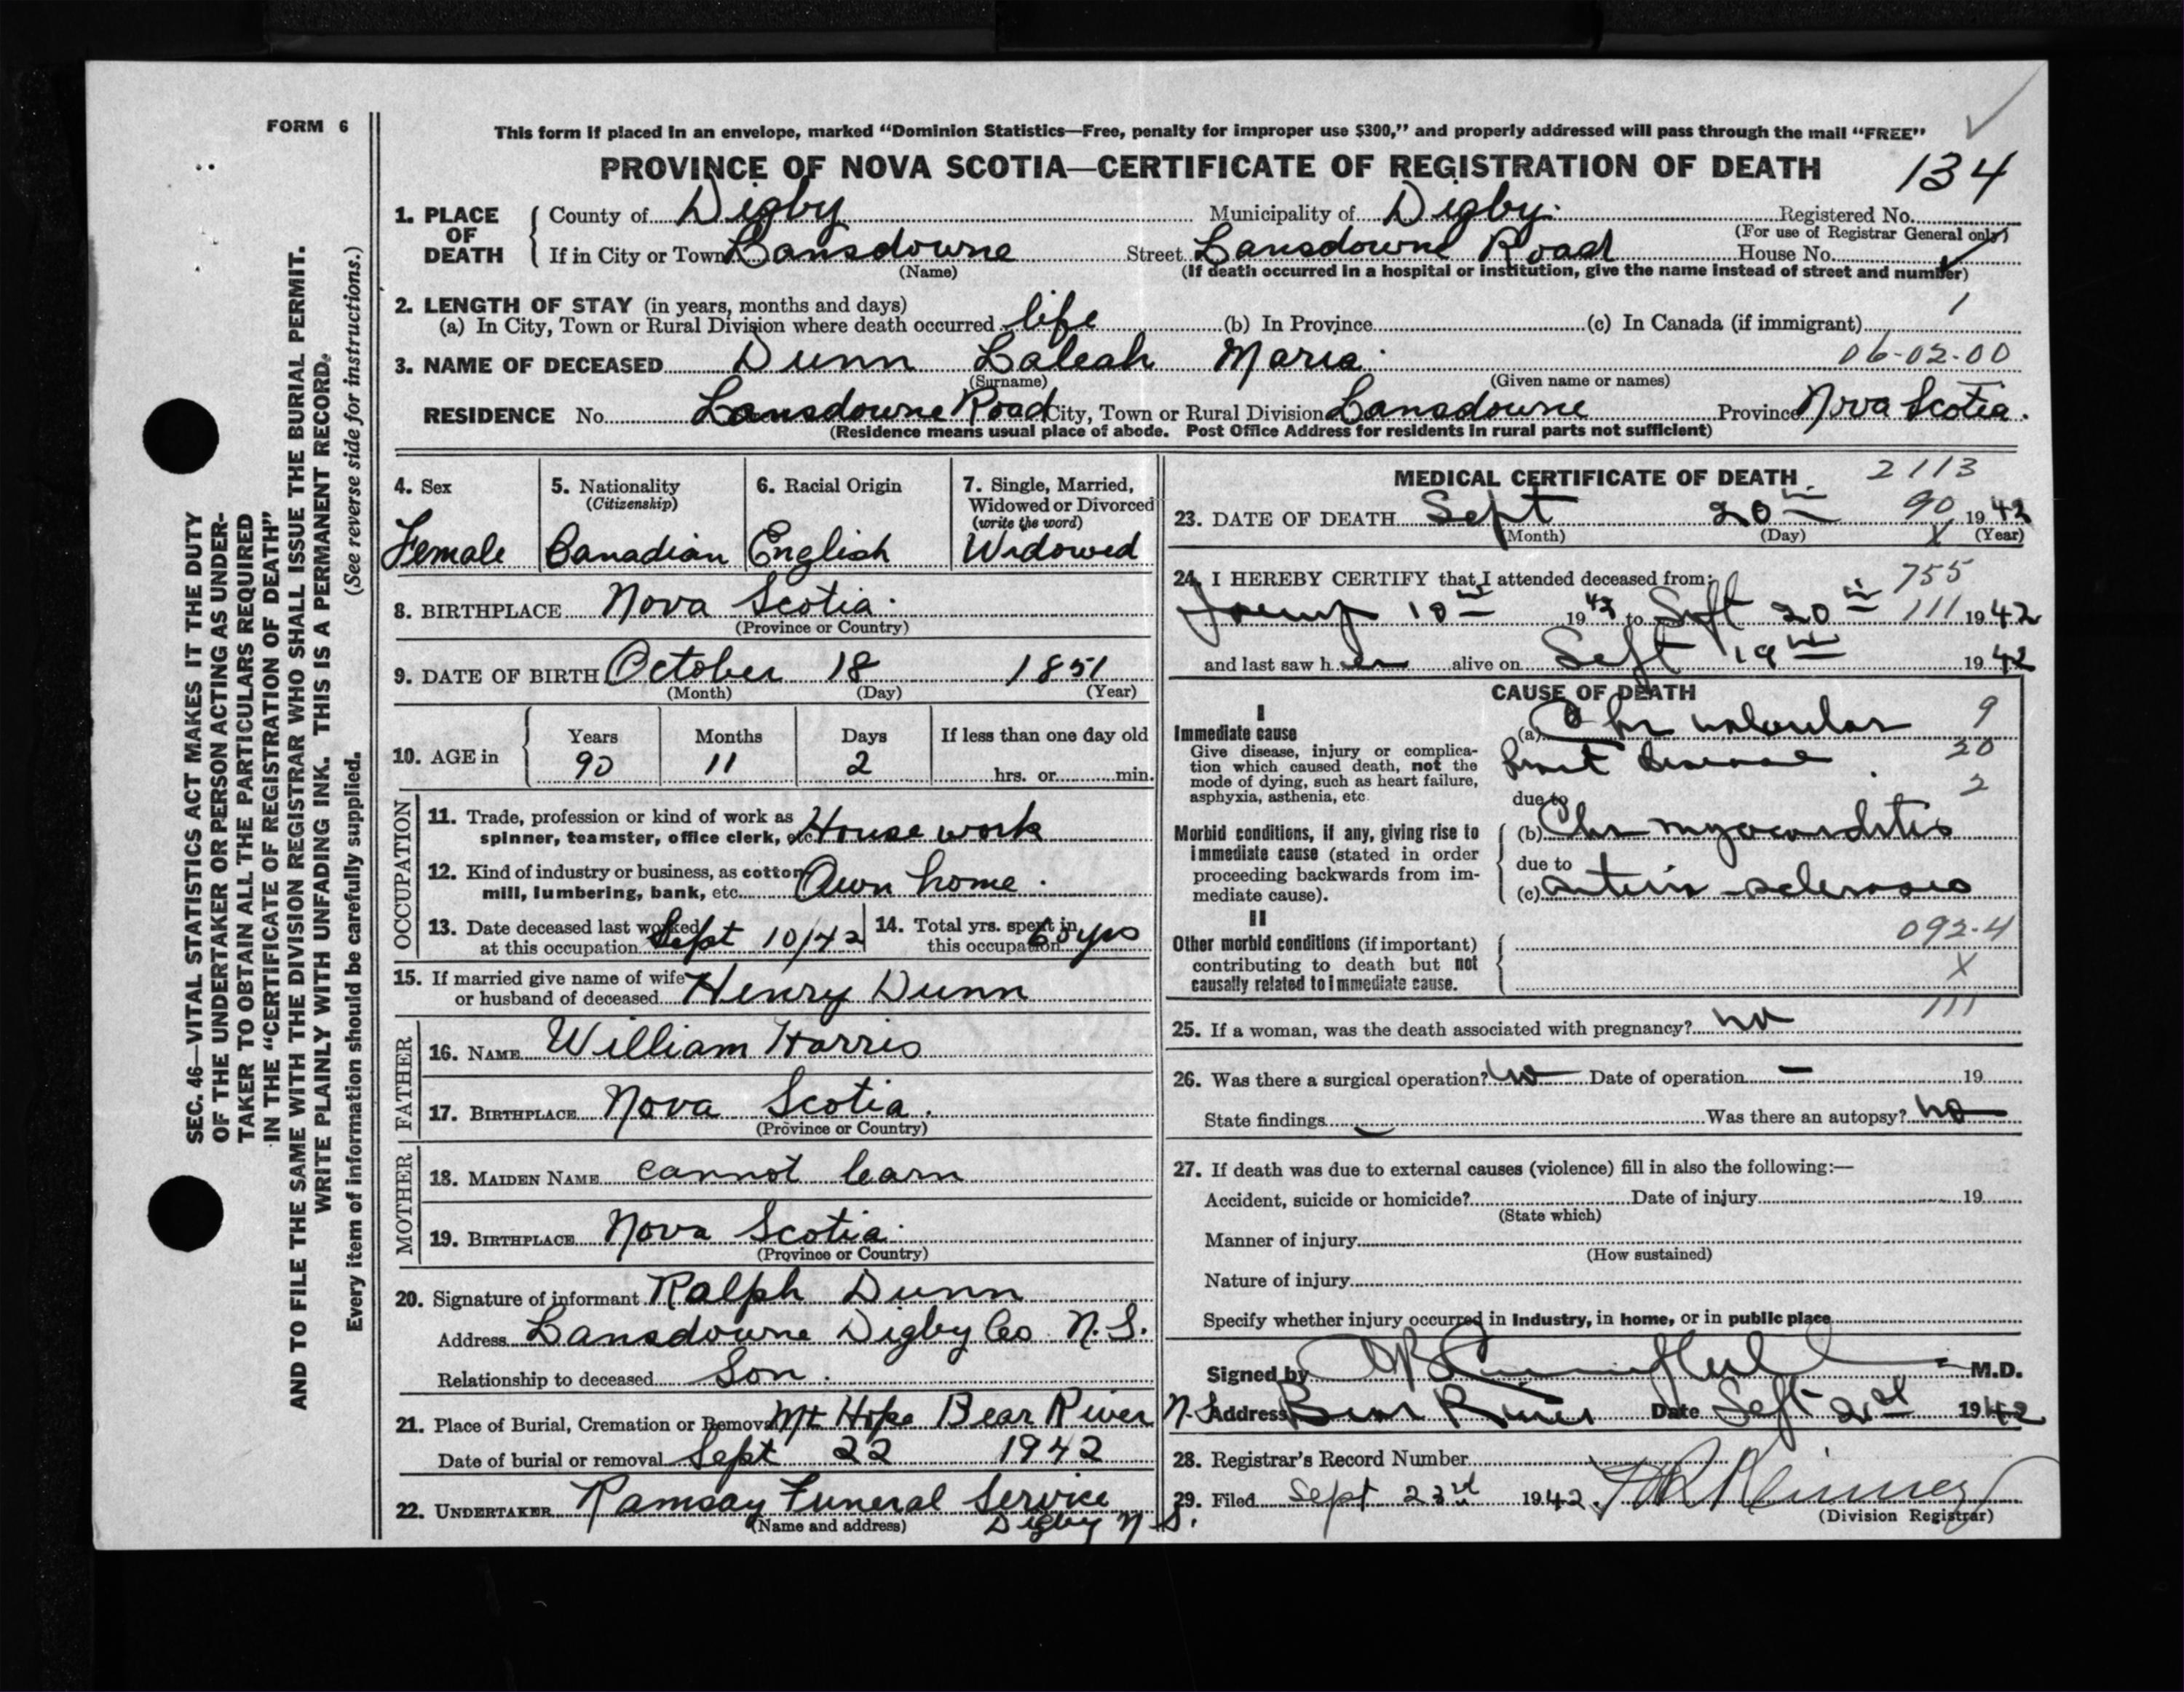 FORM 6
This form if placed in an envelope, marked “Dominion Statistics—Free, penalty for improper use $300,” and properly addressed will pass through the mail “FREE”
PROVINCE OF NOVA SCOTIA—CERTIFICATE OF REGISTRATION OF DEATH
134
1. PLACE OF DEATH County of Digby Municipality of Digby. Registered No.
(For use of Registrar General only)
If in City or Town Lansdowne Street Lansdowne Road House No.
(Name) (If death occurred in a hospital or institution, give the name instead of street and number)
2. LENGTH OF STAY (in years, months and days) 1
(a) In City, Town or Rural Division where death occurred life (b) In Province (c) In Canada (if immigrant)
3. NAME OF DECEASED Dunn Laleah Maria. 06-02-00
(Surname) (Given name or names)
RESIDENCE No. Lansdowne Road City, Town or Rural Division Lansdowne Province Nova Scotia.
(Residence means usual place of abode. Post Office Address for residents in rural parts not sufficient)
4. Sex 5. Nationality 6. Racial Origin 7. Single, Married,
(Citizenship) Widowed or Divorced
(write the word)
Female Canadian English Widowed
8. BIRTHPLACE Nova Scotia.
(Province or Country)
9. DATE OF BIRTH October 18 1851
(Month) (Day) (Year)
Years Months Days If less than one day old
10. AGE in 90 11 2 hrs. or min.
OCCUPATION
11. Trade, profession or kind of work as
spinner, teamster, office clerk, etc. House work
12. Kind of industry or business, as cotton
mill, lumbering, bank, etc. Own home.
13. Date deceased last worked 14. Total yrs. spent in
at this occupation Sept 10/42 this occupation 60 yrs
15. If married give name of wife
or husband of deceased Henry Dunn
FATHER
16. NAME William Harris
17. BIRTHPLACE Nova Scotia.
(Province or Country)
MOTHER
18. MAIDEN NAME cannot learn
19. BIRTHPLACE Nova Scotia.
(Province or Country)
20. Signature of informant Ralph Dunn
Address Lansdowne Digby Co. N.S.
Relationship to deceased Son.
21. Place of Burial, Cremation or Removal Mt Hope Bear River N.S
Date of burial or removal Sept 22 1942
22. UNDERTAKER Ramsay Funeral Service
(Name and address) Digby N.S.
MEDICAL CERTIFICATE OF DEATH 2113
23. DATE OF DEATH Sept 20th 90 1942
(Month) (Day) X (Year)
24. I HEREBY CERTIFY that I attended deceased from: 755
10th 1942 to Sept 20th 111 1942
and last saw her alive on Sept 19th 1942
CAUSE OF DEATH
I
Immediate cause (a) Chr valvular 9
Give disease, injury or complication which caused death, not the mode of dying, such as heart failure, asphyxia, asthenia, etc.
heart disease 20
2
due to
Morbid conditions, if any, giving rise to immediate cause (stated in order proceeding backwards from immediate cause).
(b) Chr myocarditis
due to
(c) arterio-sclerosis
II
Other morbid conditions (if important) contributing to death but not causally related to immediate cause.
092-4
X
111
25. If a woman, was the death associated with pregnancy? no
26. Was there a surgical operation? no Date of operation — 19
State findings Was there an autopsy? no
27. If death was due to external causes (violence) fill in also the following:—
Accident, suicide or homicide? Date of injury 19
(State which)
Manner of injury
(How sustained)
Nature of injury
Specify whether injury occurred in Industry, in home, or in public place
Signed by M.D.
Address Bear River Date Sept 21st 1942
28. Registrar's Record Number
29. Filed Sept 23rd 1942.
(Division Registrar)
SEC. 46—VITAL STATISTICS ACT MAKES IT THE DUTY
OF THE UNDERTAKER OR PERSON ACTING AS UNDER-
TAKER TO OBTAIN ALL THE PARTICULARS REQUIRED
IN THE “CERTIFICATE OF REGISTRATION OF DEATH”
AND TO FILE THE SAME WITH THE DIVISION REGISTRAR WHO SHALL ISSUE THE BURIAL PERMIT.
WRITE PLAINLY WITH UNFADING INK. THIS IS A PERMANENT RECORD.
Every item of information should be carefully supplied. (See reverse side for instructions.)